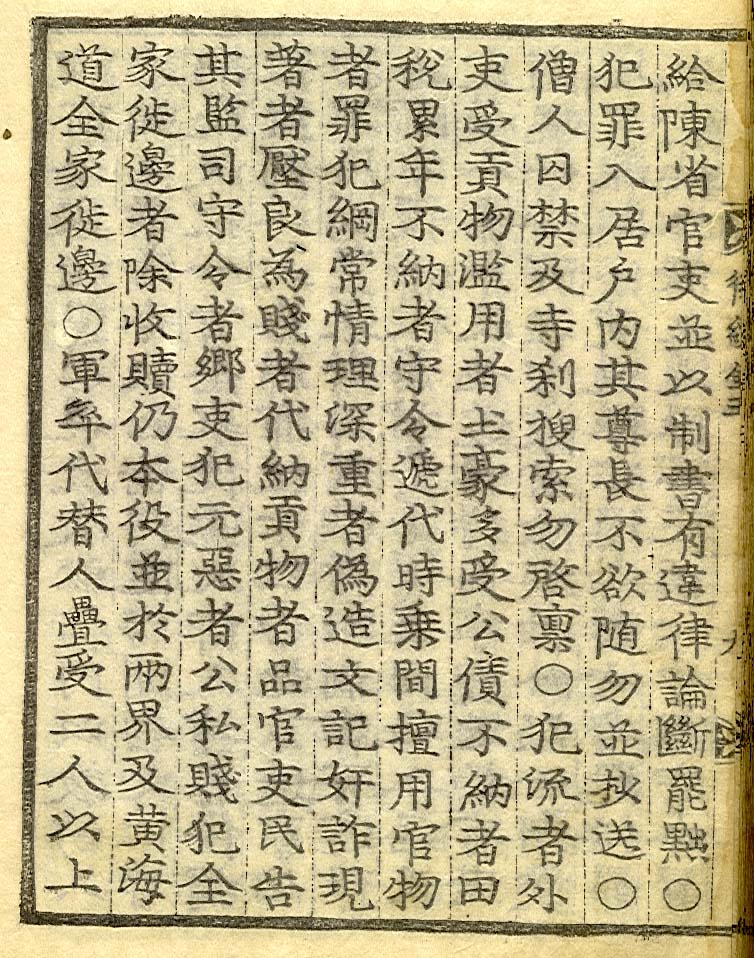 給陳省官吏並以制書有違律論斷罷黜○
犯罪入居戶內其尊長不欲随勿並抄送○
僧人囚禁及寺刹搜索勿啓禀○犯流者外
吏受貢物濫用者土豪多受公債不納者田
稅累年不納者守令遞代時乗間擅用官物
者罪犯綱常情理深重者偽造文記奸詐現
著者壓良為賤者代納貢物者品官吏民告
其監司守令者鄉吏犯元惡者公私賤犯全
家徙邊者除收贖仍本役並於兩界及黄海
道全家徙邊○軍卒代替人疊受二人以上